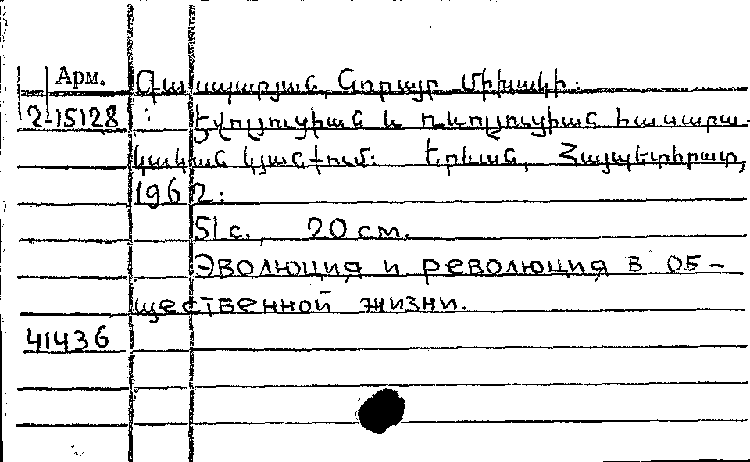 Арм. Գասպարյան, Նորայր Միխակի:
2-15128 : Էվոլյուցիան և ռևոլյուցիան հասարա-
կական կյանքում: Երևան, Հայպետհրատ,
1962:
51 с., 20 см.
Эволюция и революция в об-
щественной жизни.
41436